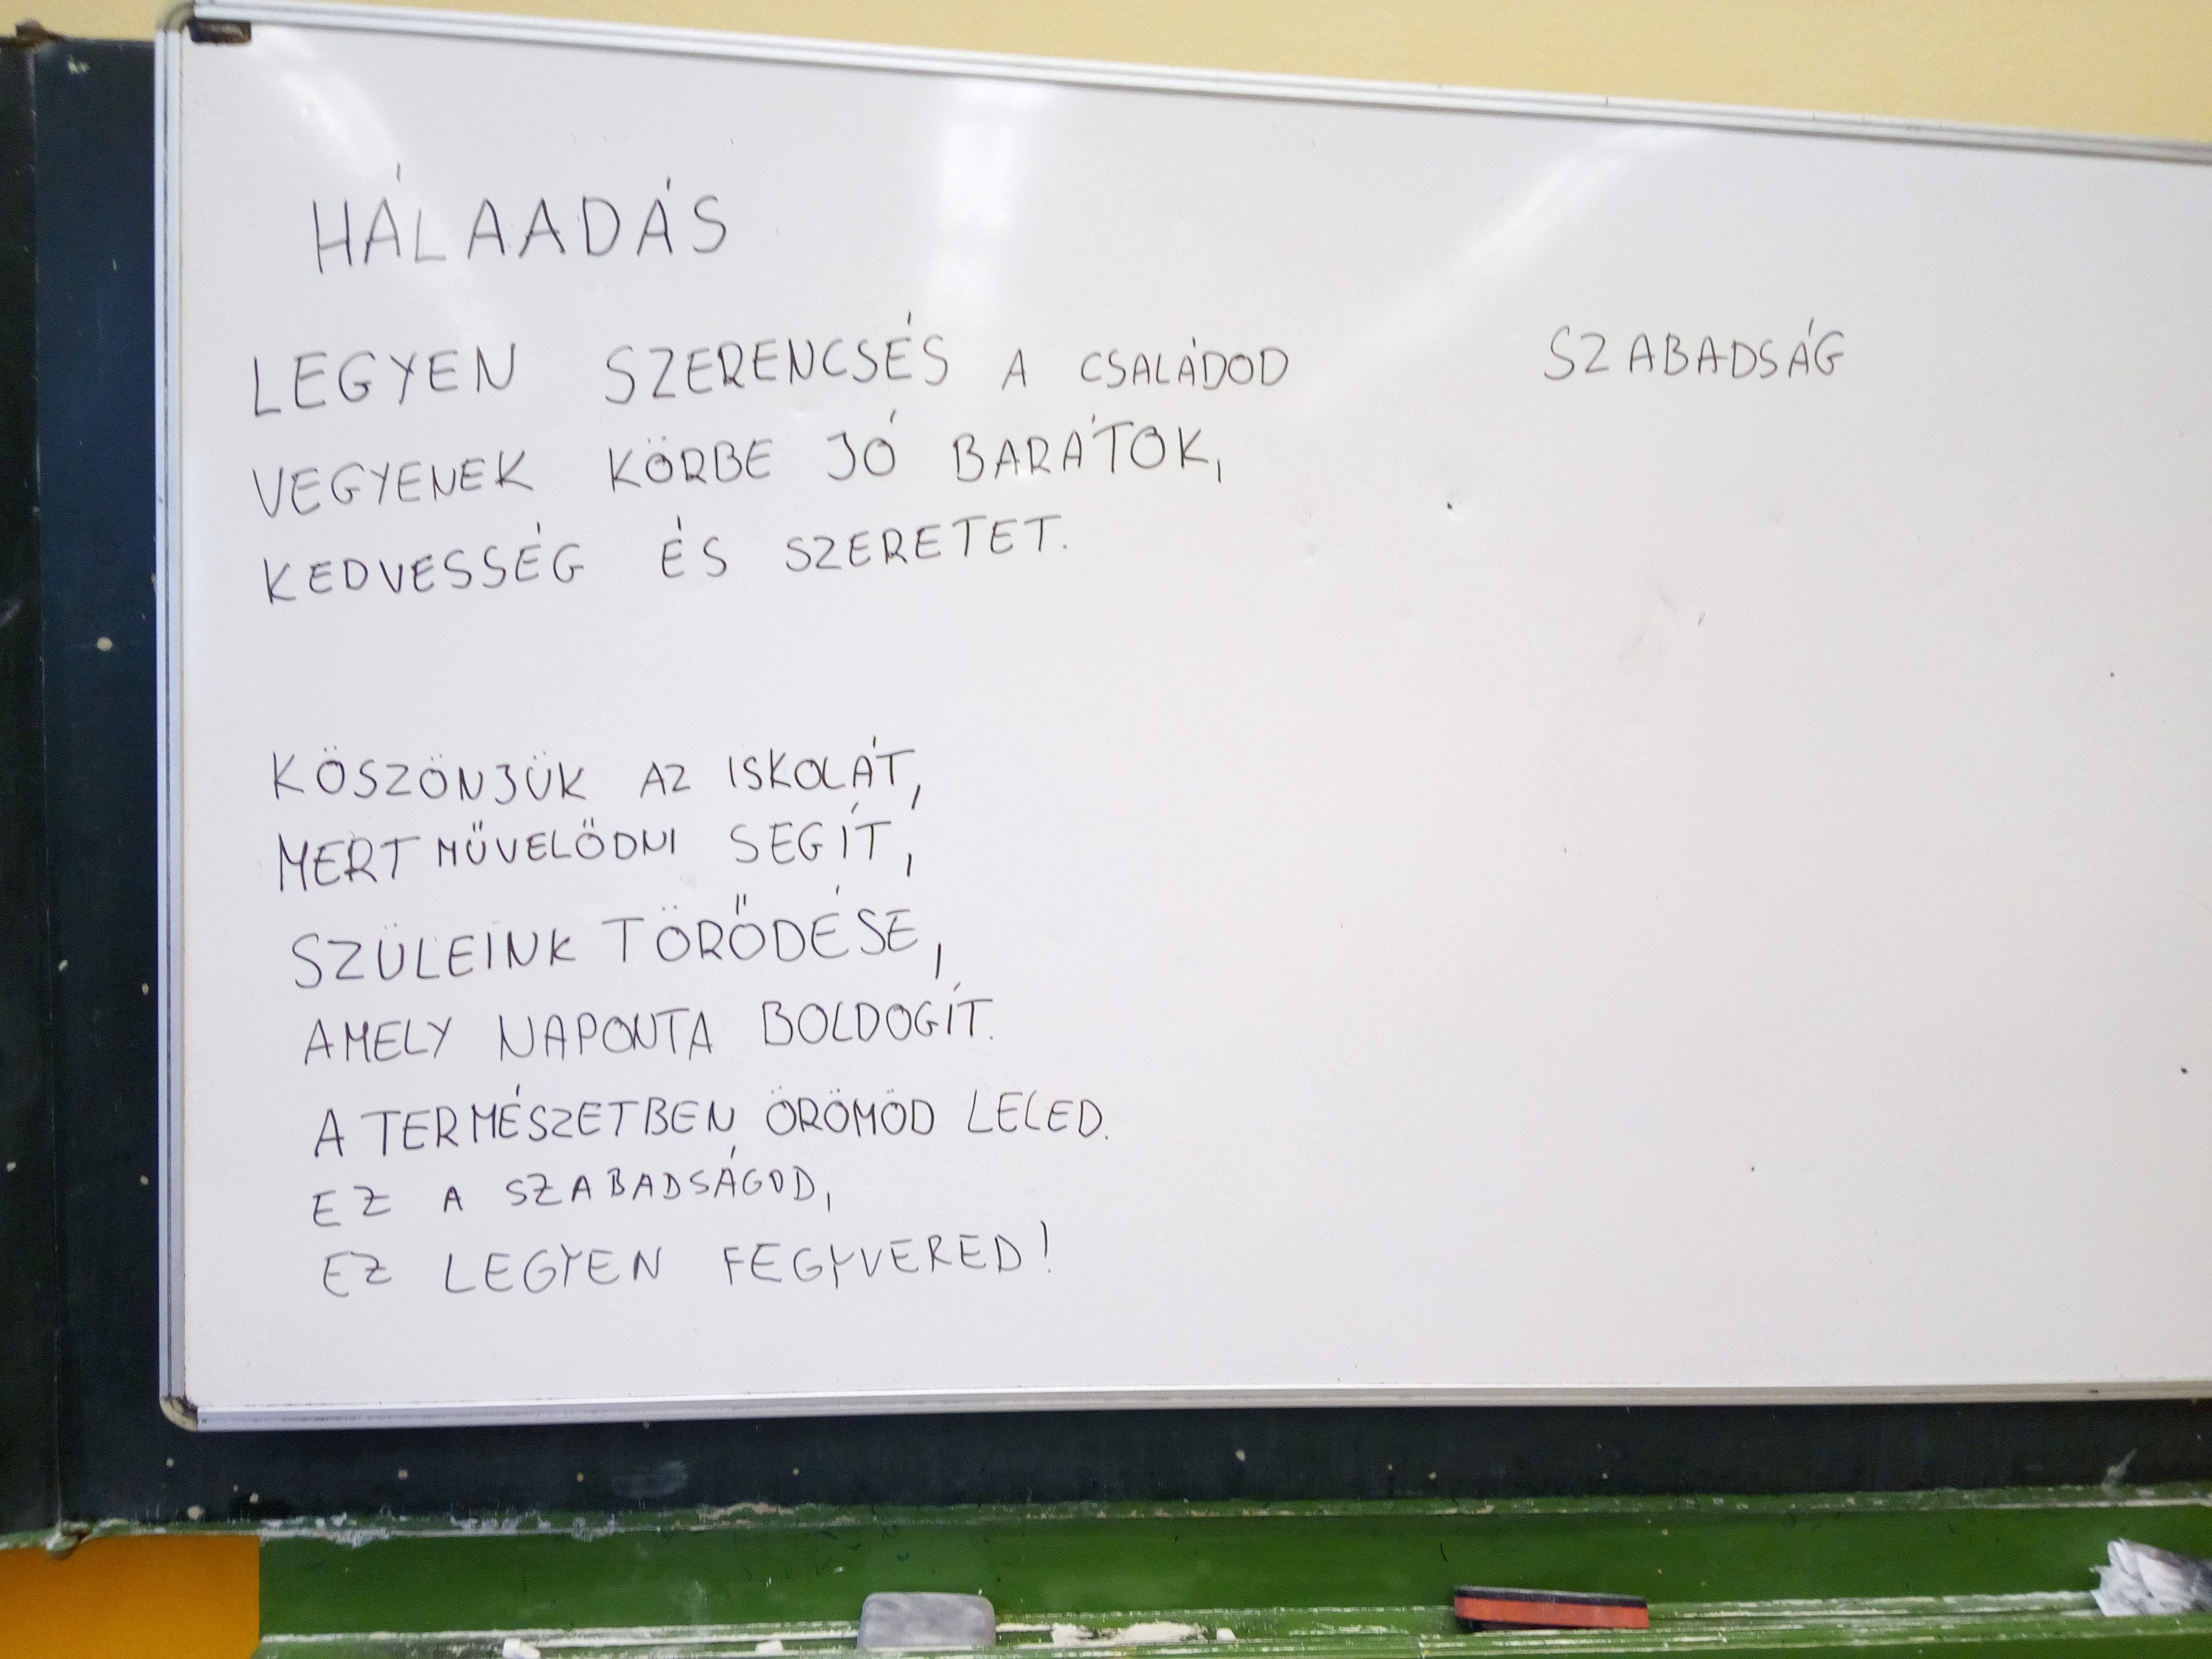 HÁLAADÁS
LEGYEN SZERENCSÉS A CSALÁDOD
VEGYENEK KÖRBE JÓ BARÁTOK,
KEDVESSÉG ÉS SZERETET.
KÖSZÖNJÜK AZ ISKOLÁT,
MERT MŰVELŐDNI SEGÍT,
SZÜLEINK TÖRŐDÉSE,
AMELY NAPONTA BOLDOGÍT.
A TERMÉSZETBEN ÖRÖMÖD LELED.
EZ A SZABADSÁGOD,
EZ LEGYEN FEGYVERED!
SZABADSÁG